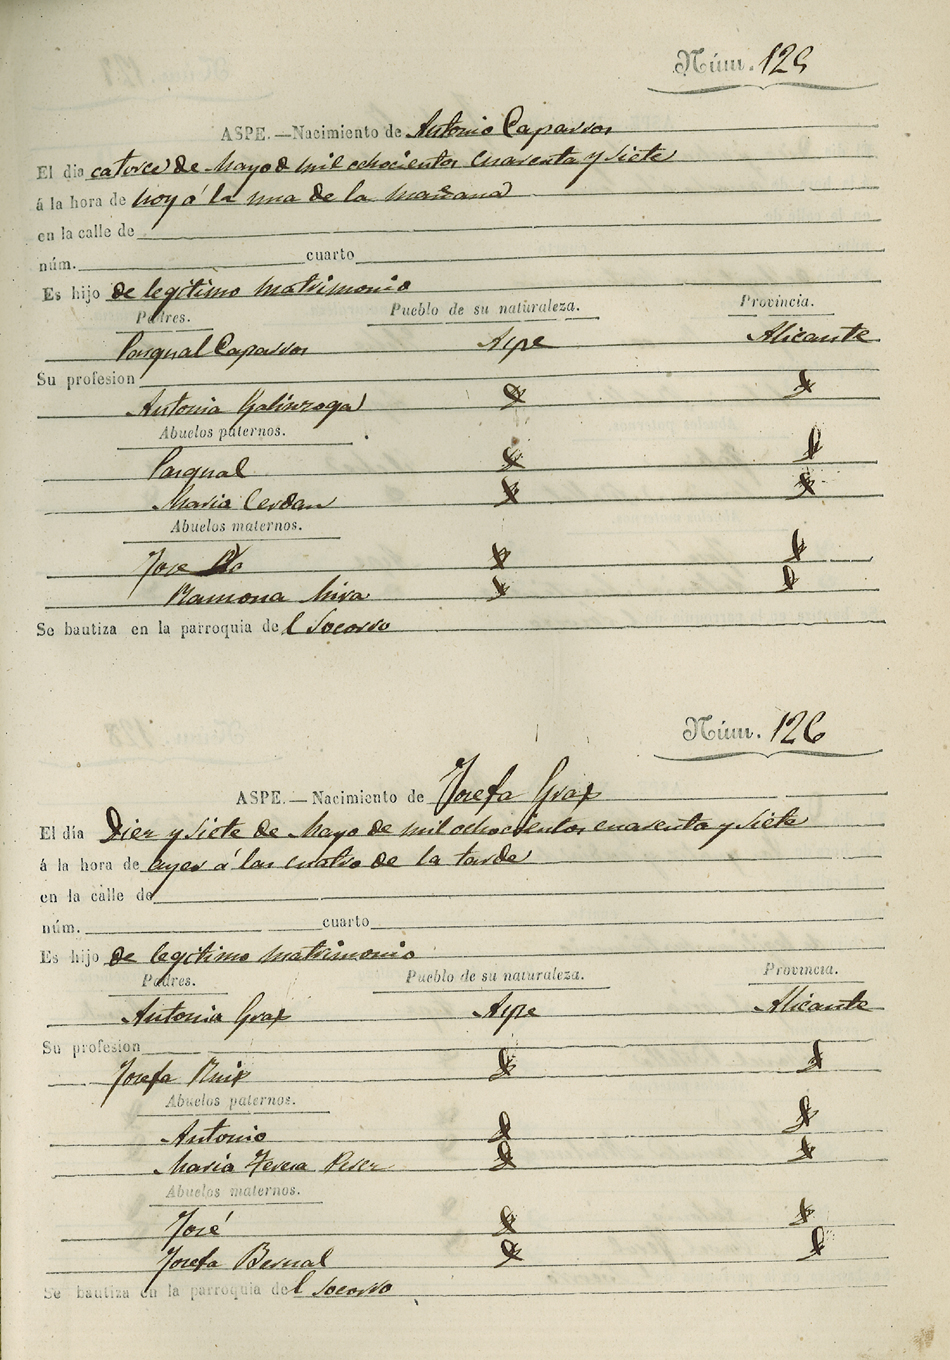 Núm. 125
ASPE.—Nacimiento de Antonio Caparros
El dia catorce de Mayo de mil ochocientos cuarenta y siete
á la hora de hoy á la una de la mañana
en la calle de
núm. cuarto
Es hijo de legitimo matrimonio
Padres. Pueblo de su naturaleza. Provincia.
Pasqual Caparros Aspe Alicante
Su profesion
Antonia Galinzoga
Abuelos paternos.
Pasqual
Maria Cerdan
Abuelos maternos.
Jose
Ramona Mira
Se bautiza en la parroquia del Socorro
Núm. 126
ASPE.—Nacimiento de Josefa Gras
El día Diez y siete de Mayo de mil ochocientos cuarenta y siete
á la hora de ayer á las cuatro de la tarde
en la calle de
núm. cuarto
Es hijo de legitimo matrimonio
Padres. Pueblo de su naturaleza. Provincia.
Antonio Gras Aspe Alicante
Su profesion
Josefa Ruiz
Abuelos paternos.
Antonio
Maria Teresa
Abuelos maternos.
José
Josefa Bernal
Se bautiza en la parroquia del Socorro